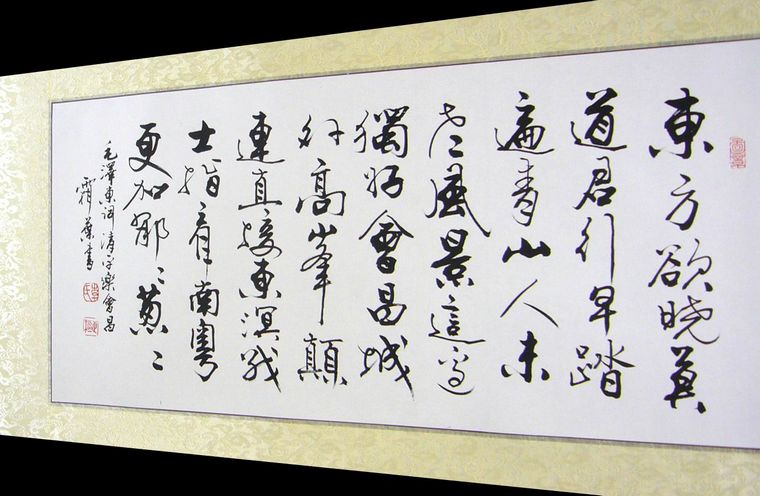 東方欲曉莫
道君行早踏
遍青山人未
老風景這邊
獨好會昌城
外高峯顛
連直接東溟戰
士指看南粵
更加郁〻葱〻
毛澤東詞 清平樂會昌
霜葉書